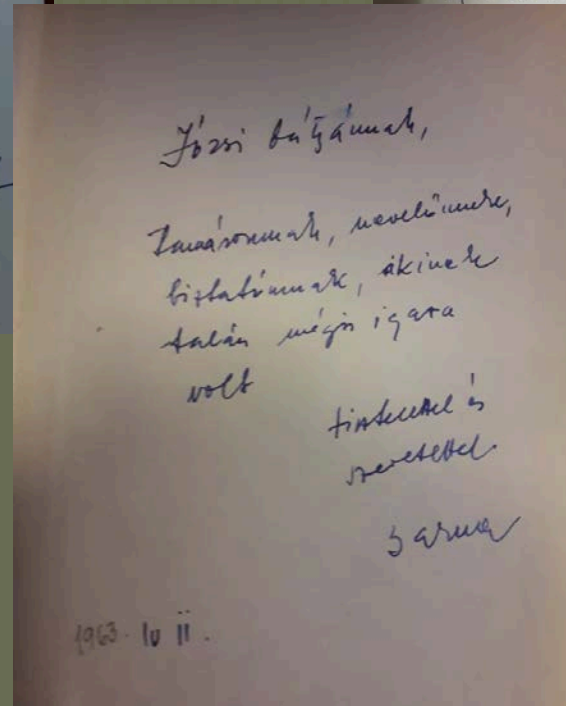 Józsi bátyámnak,
tanáromnak, nevelőmnek,
biztatómnak, akinek
talán mégis igaza
volt
tisztelettel és
szeretettel
Barna
1963. IV 11.